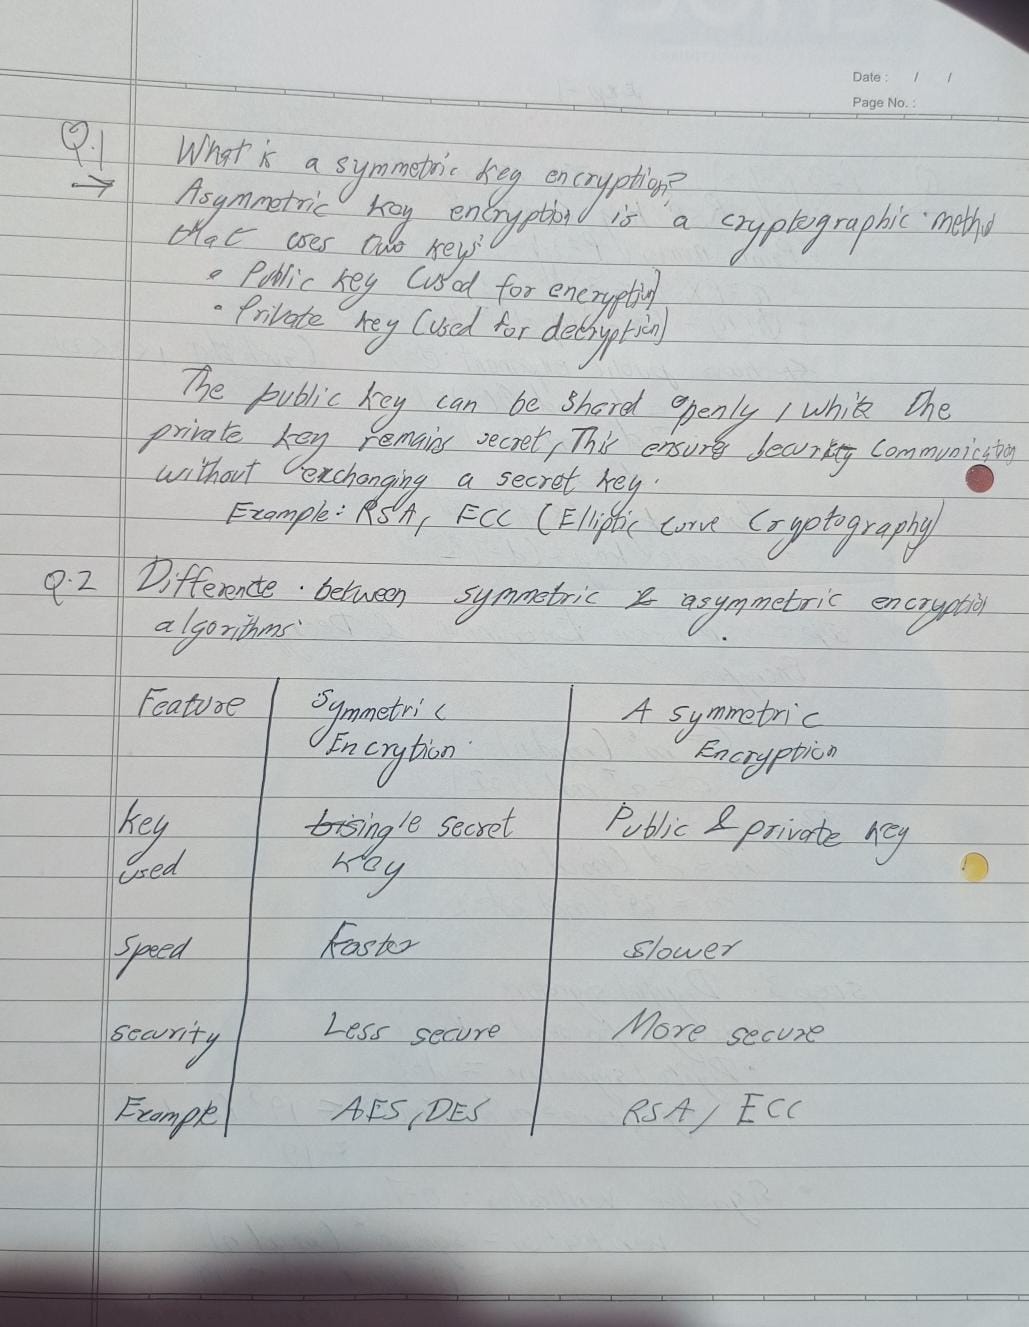 Date : / /
Page No. :
Q.1 What is a symmetric key encryption?
→ Asymmetric key encryption is a cryptographic method
that uses two keys
• Public key (used for encryption)
• Private key (used for decryption)
The public key can be shared openly, while the
private key remains secret, This ensures security communication
without exchanging a secret key.
Example: RSA, ECC (Elliptic curve Cryptography)
Q.2 Difference between symmetric & asymmetric encryption
algorithms
Feature Symmetric A symmetric
Encrytion Encryption
Key single secret Public & private key
used key
Speed Faster Slower
Security Less secure More secure
Example AES, DES RSA, ECC